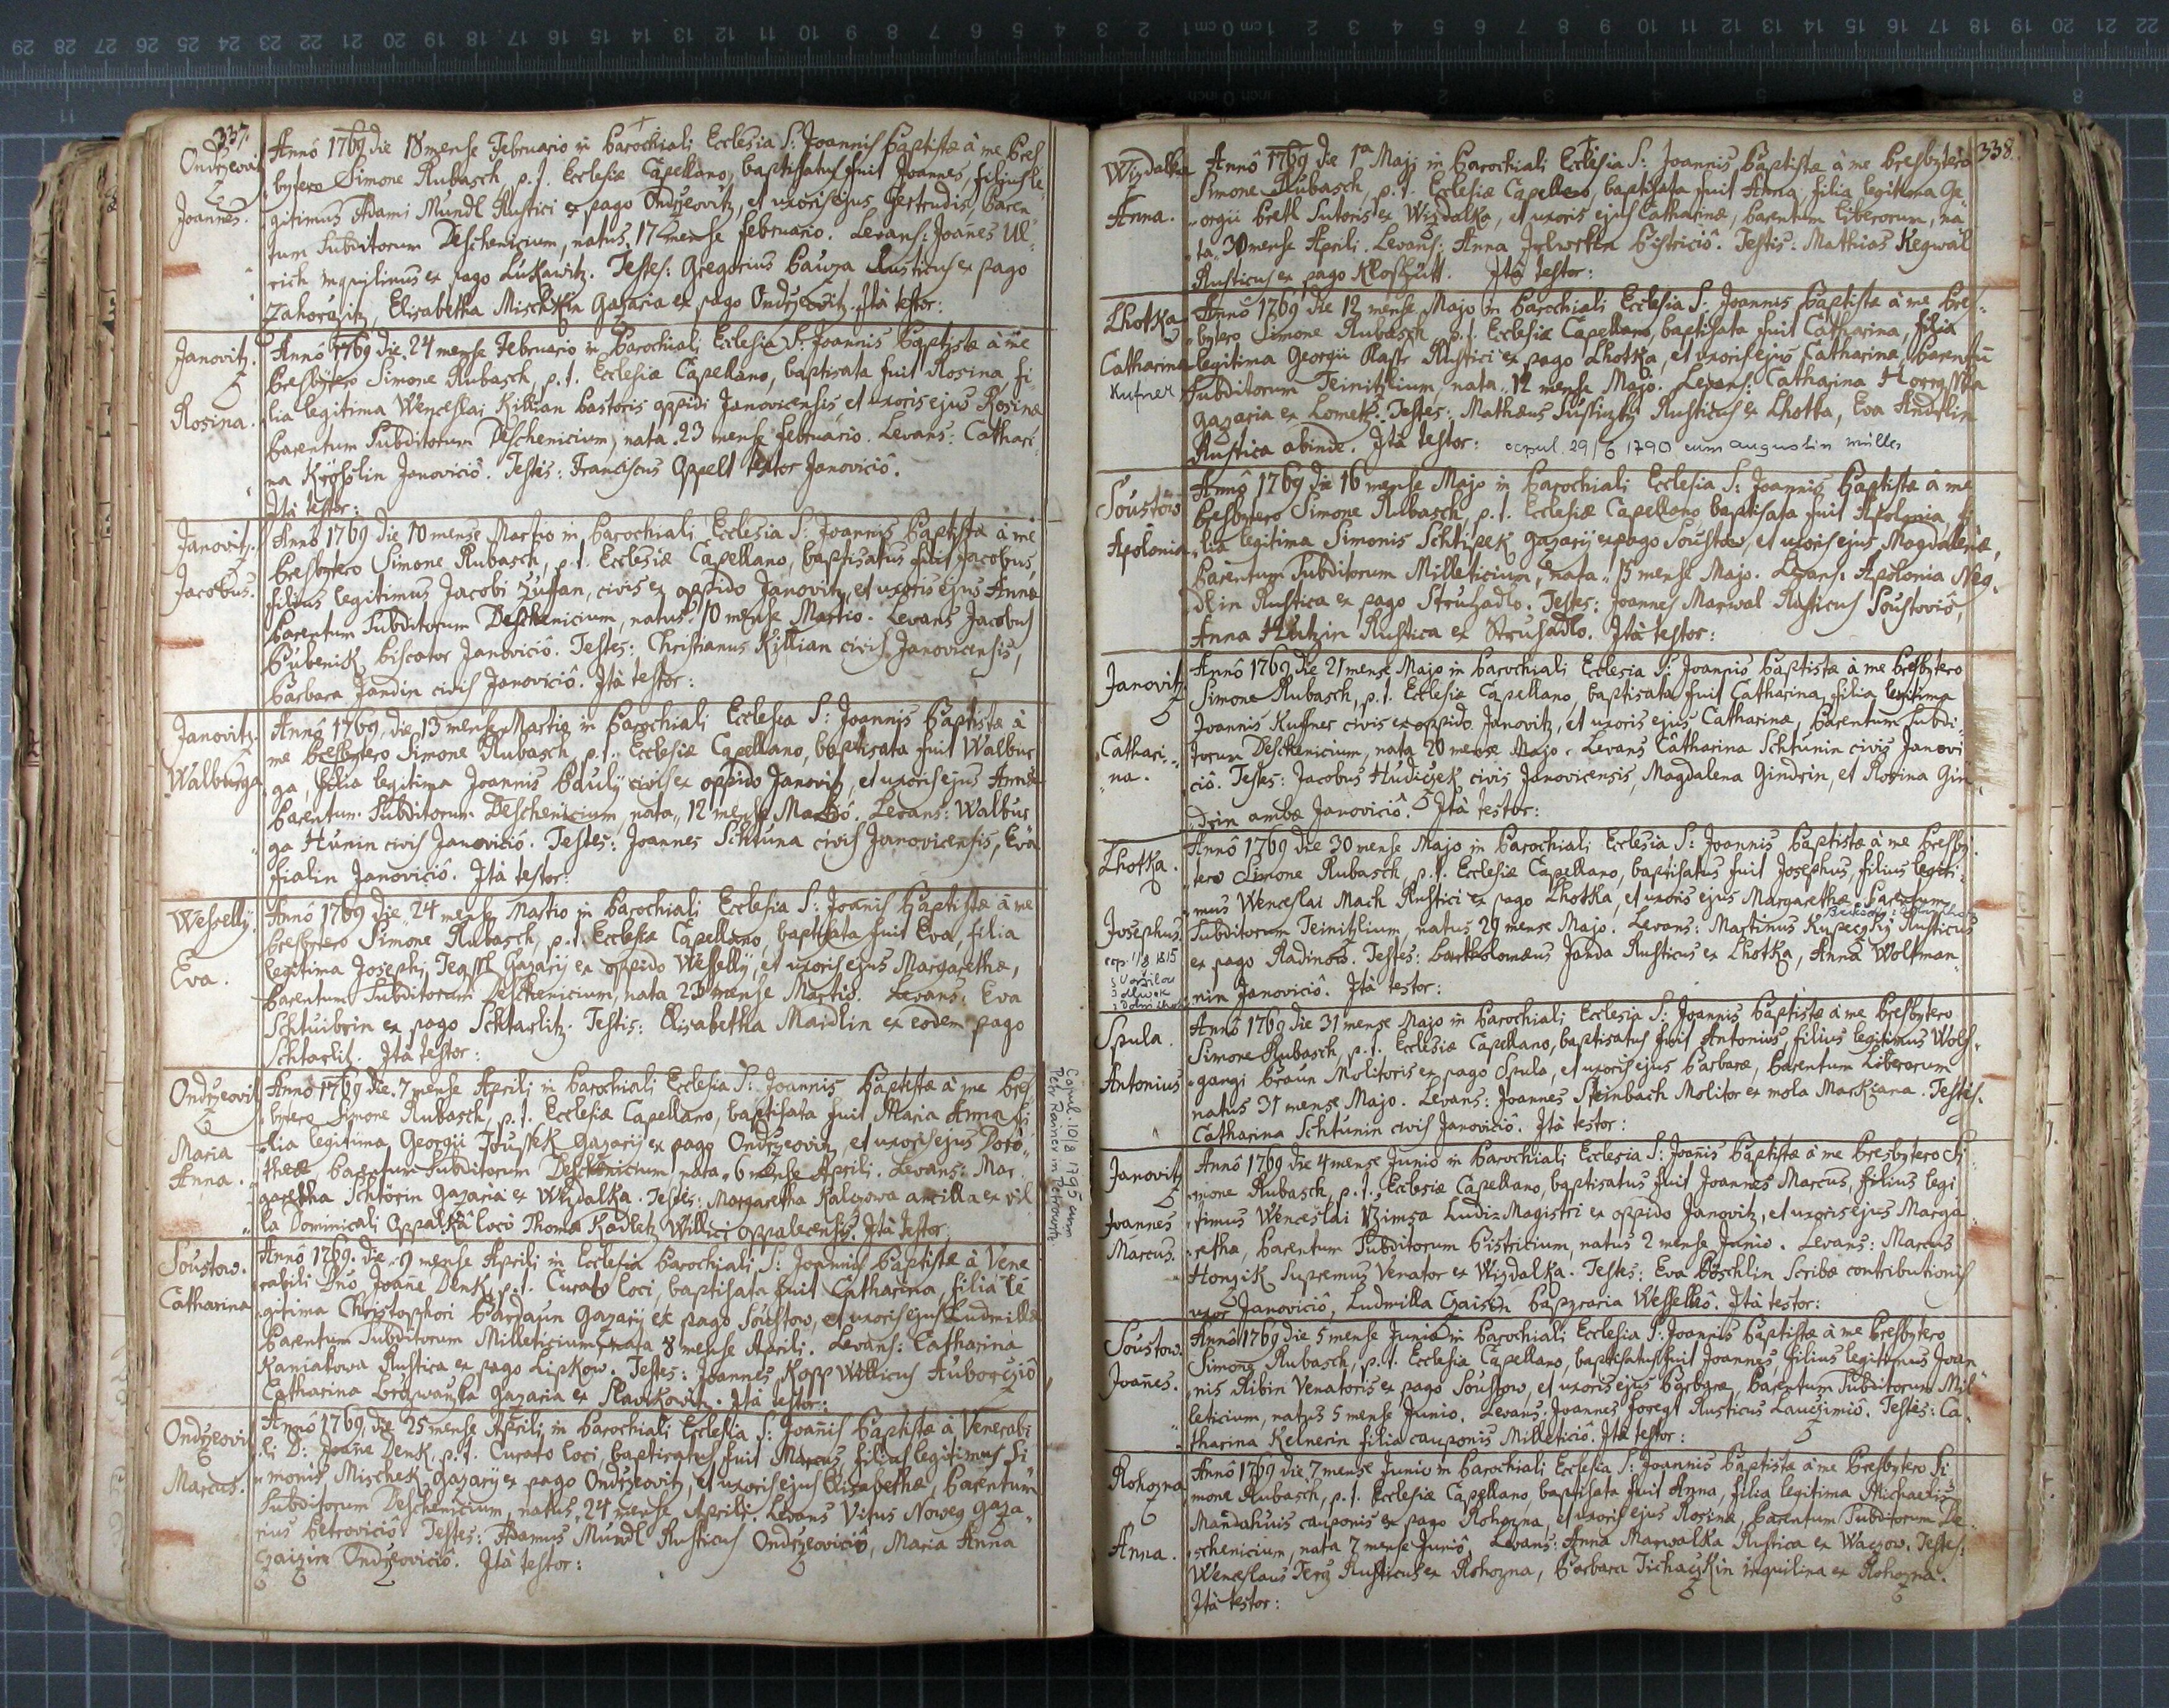 337.
Ondrzeovitz
Joannes.
Annô 1769 die 18 mense Februario in Parochiali Ecclesia S: Joannis Baptistæ à me Pres
bytero Simone Rubasch, p. t. Ecclesiæ Capellano, baptisatus fuit Joannes, filius le
gitimus Adami Mundl Rustici ex pago Ondrzeovitz, et uxoris ejus Gertrudis, Paren
tum Subditorum Deschenicium, natus 17 mense Februario. Levans: Joanes Ul
rich inquilinus ex pago Luskawitz. Testes: Gregorius Rusticus ex pago
Elisabetha ex pago Ondrzeovitz. Ità testor:
Janovitz.
Rosina.
Annô 1769 die 24 mense Februario in Parochiali Ecclesia S: Joannis Baptistæ à me
Presbytero Simone Rubasch, p. t. Ecclesiæ Capellano, baptisata fuit Rosina, fi
lia legitima Wenceslai Killian Pastoris oppidi Janovicensis et uxoris ejus Rosinæ
Parentum Subditorum Deschenicium, nata 23 mense Februario. Levans: Cathari
na Janoviciô. Testis: Franciscus Oppelt Janoviciô.
Ità testor:
Janovitz.
Jacobus.
Annô 1769 die 10 mense Martio in Parochiali Ecclesia S: Joannis Baptistæ à me
Presbytero Simone Rubasch, p. t. Ecclesiæ Capellano, baptisatus fuit Jacobus,
filius legitimus Jacobi civis ex oppido Janovitz, et uxoris ejus Annæ
Parentum Subditorum Deschenicium, natus 10 mense Martio. Levans Jacobus
Bubenik Piscator Janoviciô. Testes: Christianus Killian civis Janovicensis,
Barbara Jandin civis Janoviciô. Ità testor:
Janovitz.
Walburga
Annô 1769, die 13 mense Martio in Parochiali Ecclesia S: Joannis Baptistæ à
me Presbytero Simone Rubasch, p. t. Ecclesiæ Capellano, baptisata fuit Walbur
ga, filia legitima Joannis civis ex oppido Janovitz, et uxoris ejus Annæ
Parentum Subditorum Deschenicium, nata 12 mense Martiô. Levans: Walbur
ga Hunin civis Janoviciô. Testes: Joannes Schtuna civis Janovicensis, Eva
Fialin Janoviciô. Ità testor:
Wesselly.
Eva.
Annô 1769 die 24 mense Martio in Parochiali Ecclesia S: Joanis Baptistæ à me
Presbytero Simone Rubasch, p. t. Ecclesiæ Capellano, baptisata fuit Eva, filia
legitima Josephi Gazarij ex oppido Wesselly, et uxoris ejus Margarethæ,
Parentum Subditorum Deschenicium, nata 23 mense Martio. Levans: Eva
Schtuibrin ex pago Schtarlitz. Testis: Elisabetha Maidlin ex eodem pago
Schtarlitz. Ità testor:
Ondrzeovitz
Maria
Anna.
Annô 1769 die 7 mense Aprili in Parochiali Ecclesia S: Joannis Baptistæ à me Pres
bytero Simone Rubasch, p. t. Ecclesiæ Capellano, baptisata fuit Maria Anna fi
lia legitima Georgii Gazarij ex pago Ondrzeovitz, et uxoris ejus Doro
theæ, Parentum Subditorum Deschenicium, nata 6 mense Aprili. Levans: Mar
garetha Schtörin Gazaria ex Wizdalka. Testes: Margaretha ancilla ex vil
la Dominicali loco Thoma Kadletz Villici oppalecensis. Ità testor:
Copul. 10/8 1795 cum
Petr Rainer in Petrowitz
Soustow.
Catharina
Annô 1769. die 9 mense Aprili in Ecclesia Parochiali S: Joannis Baptistæ à Vene
rabili Dno Joañe Denk, p. t. Curato loci, baptisata fuit Catharina, filia le
gitima Christophori Gazarij ex pago Soustow, et uxoris ejus Ludmillæ
Parentum Subditorum Milleticium, nata 8 mense Aprili. Levans: Catharina
Kaniatowa Rustica ex pago Lipkow. Testes: Joannes Kopp Willicus
Catharina Gazaria ex Slavikovitz. Ità testor:
Ondrzeovitz
Marcus.
Annô 1769, die 25 mense Aprili in Parochiali Ecclesia S: Joañis Baptistæ à Venerabi
li D: Joañe Denk, p. t. Curato loci, baptisatus fuit Marcus, filius legitimus Si
monis Mischek Gazarij ex pago Ondrzeovitz, et uxoris ejus Elisabethæ, Parentum
Subditorum Deschenicium, natus 24 mense Aprili. Levans Vitus Noweg Gaza
rius Petroviciô. Testes: Adamus Mundl Rusticus Ondrzeoviciô, Maria Anna
Ondrzeoviciô. Ità testor:
338.
Wizdalka
Anna.
Annô 1769 die 1a Maji in Parochiali Ecclesia S: Joannis Baptistæ à me Presbytero
Simone Rubasch, p. t. Ecclesiæ Capellano, baptisata fuit Anna filia legitima Ge
orgii Pretl Sutoris ex Wizdalka, et uxoris ejus Catharinæ, Parentum Liberorum, na
ta 30 mense Aprili. Levans: Anna Bistriciô. Testis: Mathias Kegwal
Rusticus ex pago Kloshütt. Ità testor:
Lhotka
Catharina
Kufner
Annô 1769 die 12 mense Majo in Parochiali Ecclesia S: Joannis Baptistæ à me Pres
bytero Simone Rubasch p. t. Ecclesiæ Capellano, baptisata fuit Catharina, filia
legitima Georgii Rustici ex pago Lhotka, et uxoris ejus Catharinæ, Parentũ
Subditorum Teinitzlium, nata 12 mense Majo. Levans: Catharina
Gazaria ex Lometz. Testes: Mathæus Rusticus ex Lhotka, Eva Andrlin
Rustica abinde. Ità testor: copul. 29/6 1790 cum augustin müller
Soustow
Apolonia
Annô 1769 die 16 mense Majo in Parochiali Ecclesia S: Joannis Baptistæ à me
Presbytero Simone Rubasch p. t. Ecclesiæ Capellano, baptisata fuit Apolonia, fi
lia legitima Simonis Schtipek Gazarij ex pago Soustow, et uxoris ejus Magdalenæ,
Parentum Subditorum Milleticium, nata 15 mense Majo. Levans Apolonia Neg
dlin Rustica ex pago Struhadlo. Testes: Joannes Marwal Rusticus Soustoviô,
Anna Hutzin Rustica ex Struhadlo. Ità testor:
Janovitz
Cathari
na.
Annô 1769 die 21 mense Majo in Parochiali Ecclesia S: Joannis Baptistæ à me Presbytero
Simone Rubasch, p. t. Ecclesiæ Capellano, baptisata fuit Catharina, filia legitima
Joannis Kuffner civis ex oppido Janovitz, et uxoris ejus Catharinæ, Parentum Subdi
torum Deschenicium, nata 20 mense Majo. Levans Catharina Schtunin civis Janovi
ciô. Testes: Jacobus Hudiczek civis Janovicensis, Magdalena Gindrin, et Rosina Gin
drin ambæ Janoviciô. Ità testor:
Lhotka.
Josephus.
Annô 1769 die 30 mense Majo in Parochiali Ecclesia S: Joannis Baptistæ à me Presby
tero Simone Rubasch, p. t. Ecclesiæ Capellano, baptisatus fuit Josephus, filius legiti
mus Wenceslai Mach Rustici ex pago Lhotka, et uxoris ejus Margarethæ Parentum
Subditorum Teinitzlium, natus 29 mense Majo. Levans: Martinus Kupeczky Rusticus
ex pago Radinow. Testes: Bartholomæus Janda Rusticus ex Lhotka, Anna Wolfman
nin Janoviciô. Ità testor:
Spula.
Antonius
Annô 1769 die 31 mense Majo in Parochiali Ecclesia S: Joannis Baptistæ à me Presbytero
Simone Rubasch, p. t. Ecclesiæ Capellano, baptisatus fuit Antonius, filius legitimus Wolf
gangi Braun Molitoris ex pago Spula, et uxoris ejus Barbaræ, Parentum Liberorum
natus 31 mense Majo. Levans: Joannes Steinbach Molitor ex mola. Testis.
Catharina Schtunin civis Janoviciô. Ità testor:
Janovitz
Joannes
Marcus.
Annô 1769 die 4 mense Junio in Parochiali Ecclesia S: Joañis Baptistæ à me Presbytero Si
mone Rubasch, p. t. Ecclesiæ Capellano, baptisatus fuit Joannes Marcus, filius legi
timus Wenceslai Ludi-Magistri ex oppido Janovitz, et uxoris ejus Marga
retha, Parentum Subditorum Bistricium, natus 2 mense Junio. Levans: Marcus
Honzik Supremus Venator ex Wizdalka. Testes: Eva Pöschlin Scribæ contributionis
uxor Janoviciô, Ludmilla Czaisin Papyraria Wesselliô. Ità testor:
Soustow.
Joañes.
Annô 1769 die 5 mense Junio in Parochiali Ecclesia S: Joannis Baptistæ à me Presbytero
Simone Rubasch, p. t. Ecclesiæ Capellano, baptisatus fuit Joannes, filius legitimus Joan
nis Ribin Venatoris ex pago Soustow, et uxoris ejus Barbaræ, Parentum Subditorum Mil
leticium, natus 5 mense Junio. Levans: Joannes Foregt Rusticus. Testes: Ca
tharina Kelnerin filia cauponis Milleticiô. Ità testor:
Rohozna
Anna.
Annô 1769 die 7 mense Junio in Parochiali Ecclesia S: Joannis Baptistæ à me Presbytero Si
mone Rubasch, p. t. Ecclesiæ Capellano, baptisata fuit Anna, filia legitima Michaelis
Mandahuis cauponis ex pago Rohozna, et uxoris ejus Rosinæ, Parentum Subditorum De
schenicium, nata 7 mense Junio. Levans: Anna Marwalka Rustica ex Waczow. Testes:
Wenceslaus Rusticus ex Rohozna, Barbara Tichaczkin inquilina ex Rohozna.
Ità testor: